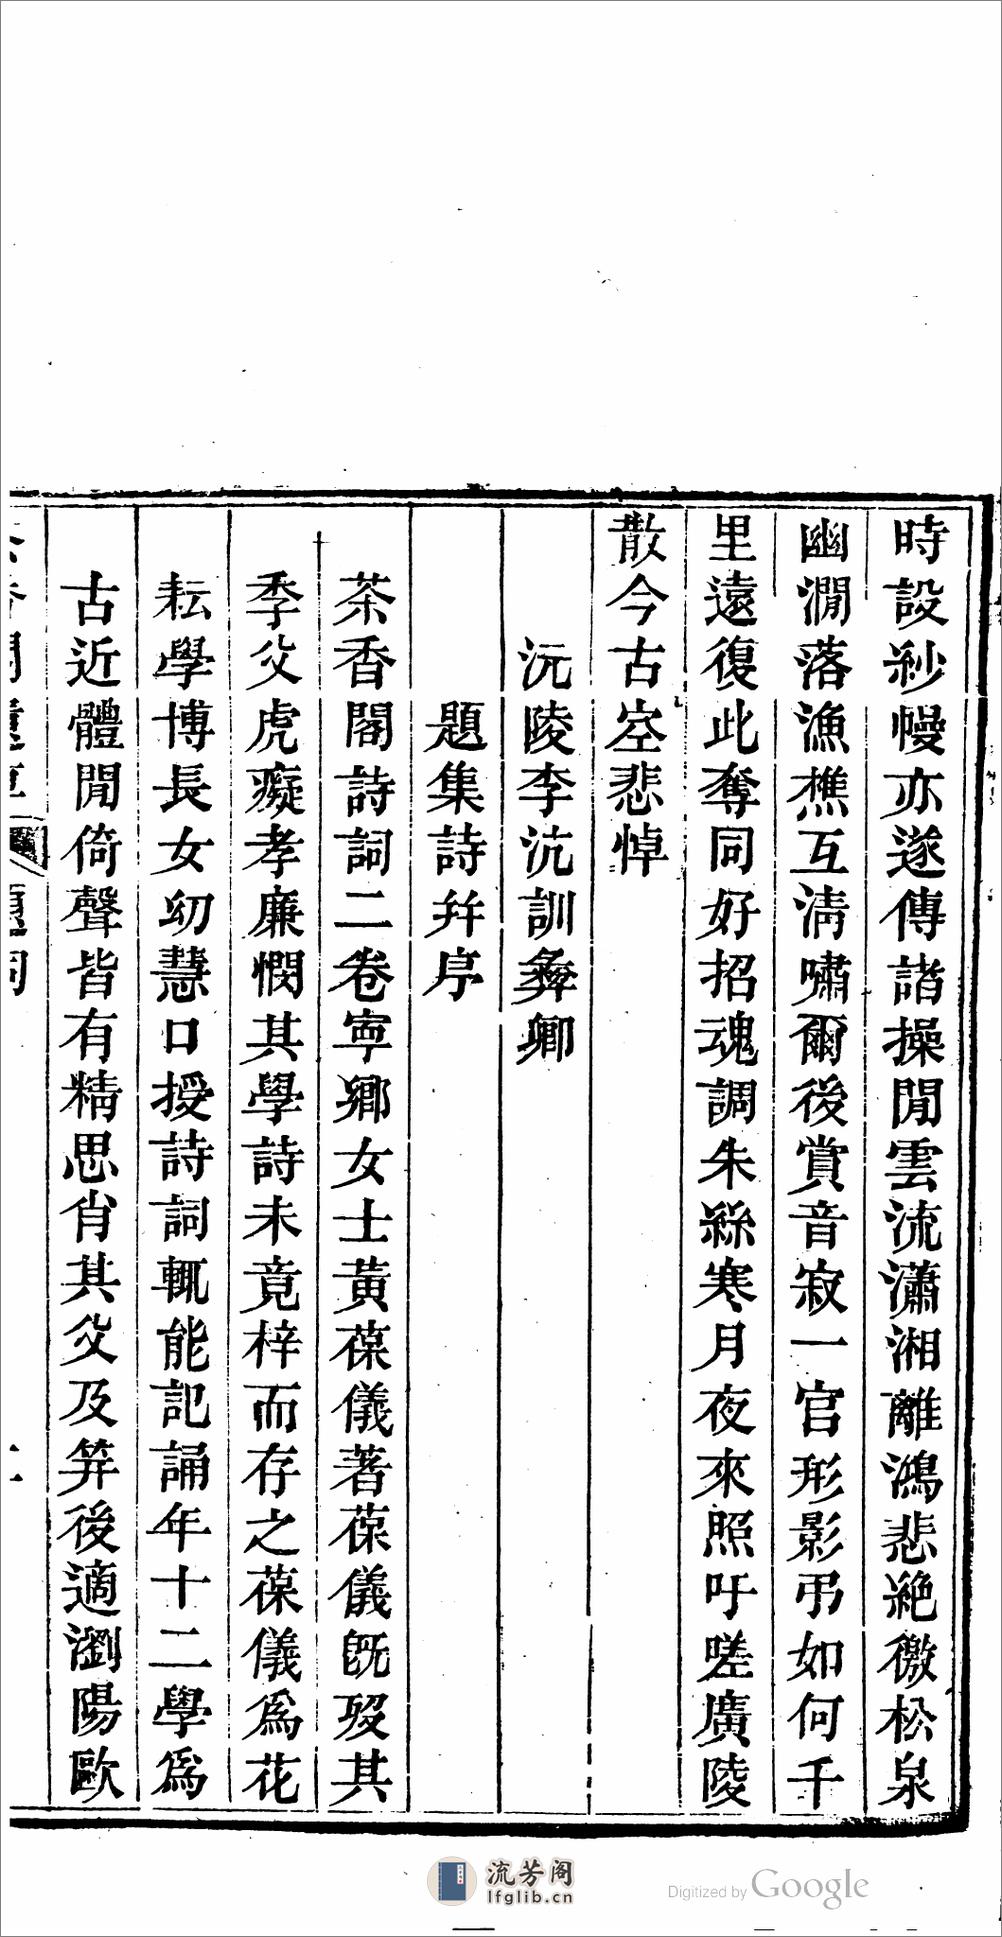 時設紗幔亦遂傳諧操閒雲流瀟湘離鴻悲絕徼松泉
幽澗落漁樵互淸嘯爾後賞音寂一官形影弔如何千
里遠復此奪同好招魂調朱絲寒月夜來照吁嗟廣陵
散今古空悲悼
沅陵李沆訓彝卿
題集詩幷序
茶香閣詩詞二卷寧鄉女士黃葆儀著葆儀旣歿其
季父虎癡孝廉憫其學詩未竟梓而存之葆儀爲花
耘學博長女幼慧口授詩詞輒能記誦年十二學爲
古近體閒倚聲皆有精思肖其父及笄後適瀏陽歐
流芳阁
lfglib.cn
Digitized by Google